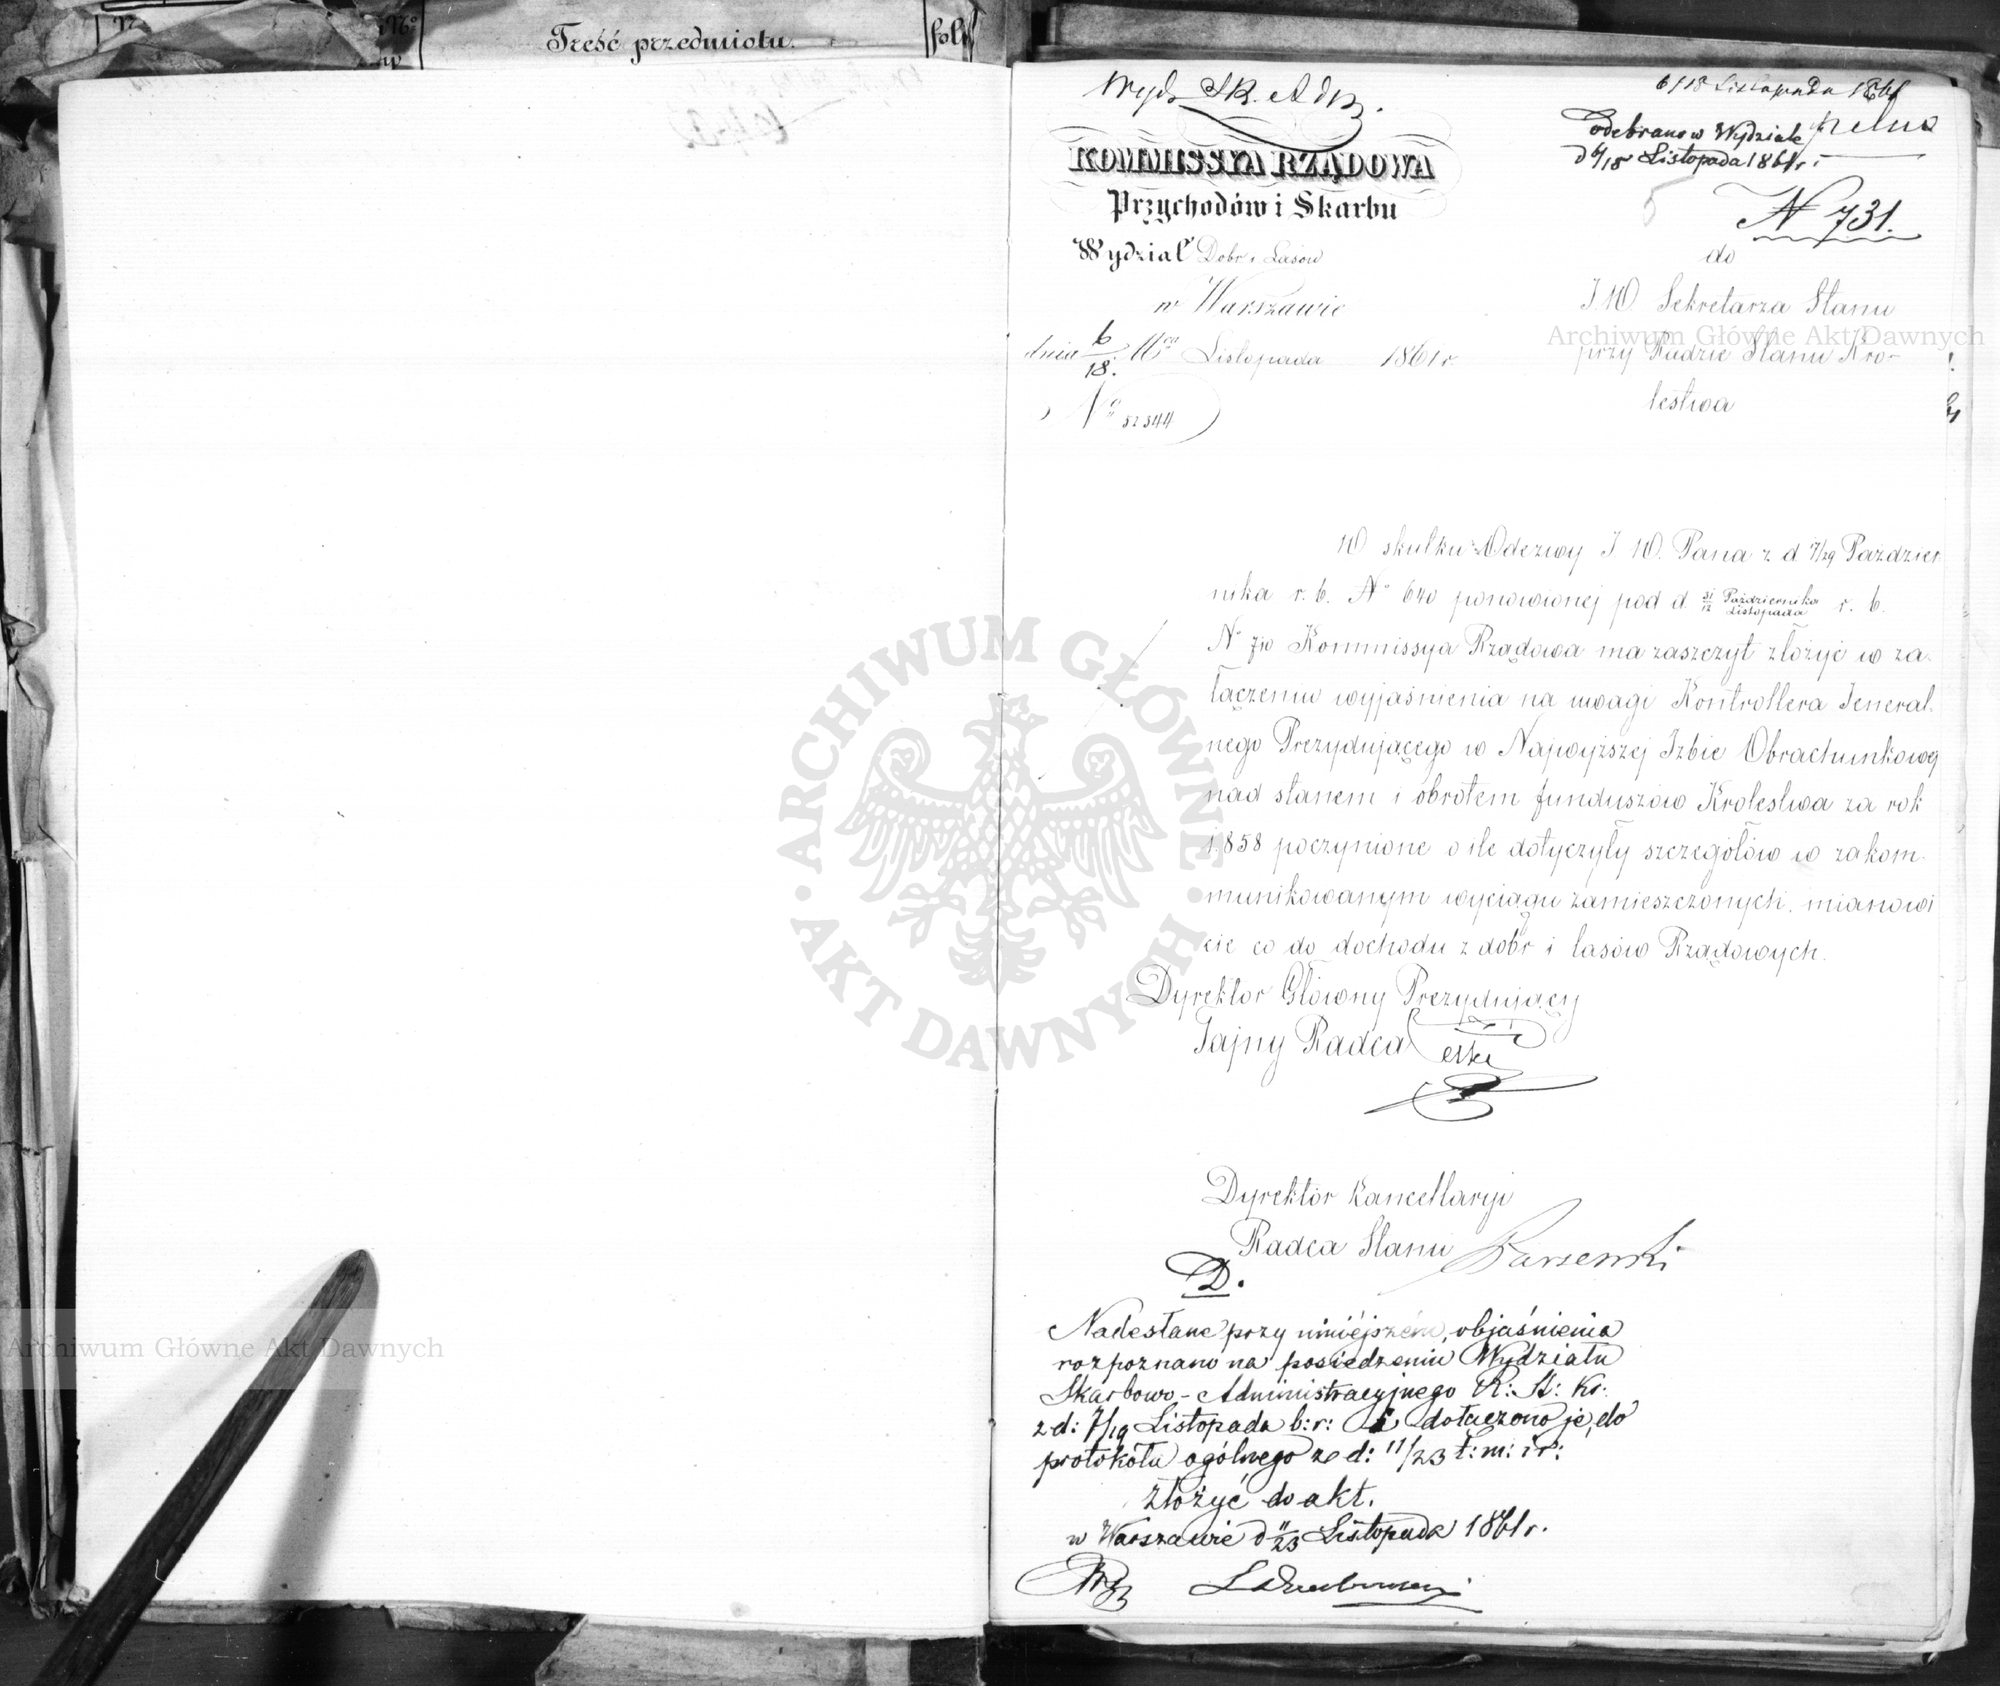 Treść przedmiotu.
Wydz. Sk. Adm.
6/18 Listopada 1861
odebrano w Wydziale
d 6/18 Listopada 1861 r.
N 731.
KOMMISSYA RZĄDOWA
Przychodów i Skarbu
Wydział Dóbr i Lasów
w Warszawie
dnia 6/18. Mca Listopada 1861 r.
No 52544
do
J.W. Sekretarza Stanu
przy Radzie Stanu Kro-
lestwa
W skutku Odezwy J W. Pana z d 7/29 Paździer
nika r. b. No 640 ponowionej pod d 31/12 Października/Listopada r. b.
No Kommissya Rządowa ma zaszczyt złożyć w za-
łączeniu wyjaśnienia na uwagi Kontrollera Jeneral-
nego Prezydującego w Najwyższej Izbie Obrachunkowej
nad stanem i obrotem funduszów Krolestwa za rok
1858 poczynione o ile dotyczyły szczegółów w zakom-
munikowanym wyciągu zamieszczonych, mianowi
cie co do dochodu z dóbr i lasów Rządowych.
Dyrektor Główny Prezydujący
Tajny Radca
Dyrektor Kancellaryi
Radca Stanu
D.
Nadesłane przy niniéjszém, objaśnienia
rozpoznano na posiedzeniu Wydziału
Skarbowo-Administracyjnego R: St: Kr:
z d: 7/19 Listopada b: r: i dołączono je, do
protokółu ogólnego ze d: 11/23 t: m: i r:
złożyć do akt.
w Warszawie d 11/23 Listopada 1861 r.
ARCHIWUM GŁÓWNE · AKT DAWNYCH ·
Archiwum Główne Akt Dawnych
Archiwum Główne Akt Dawnych